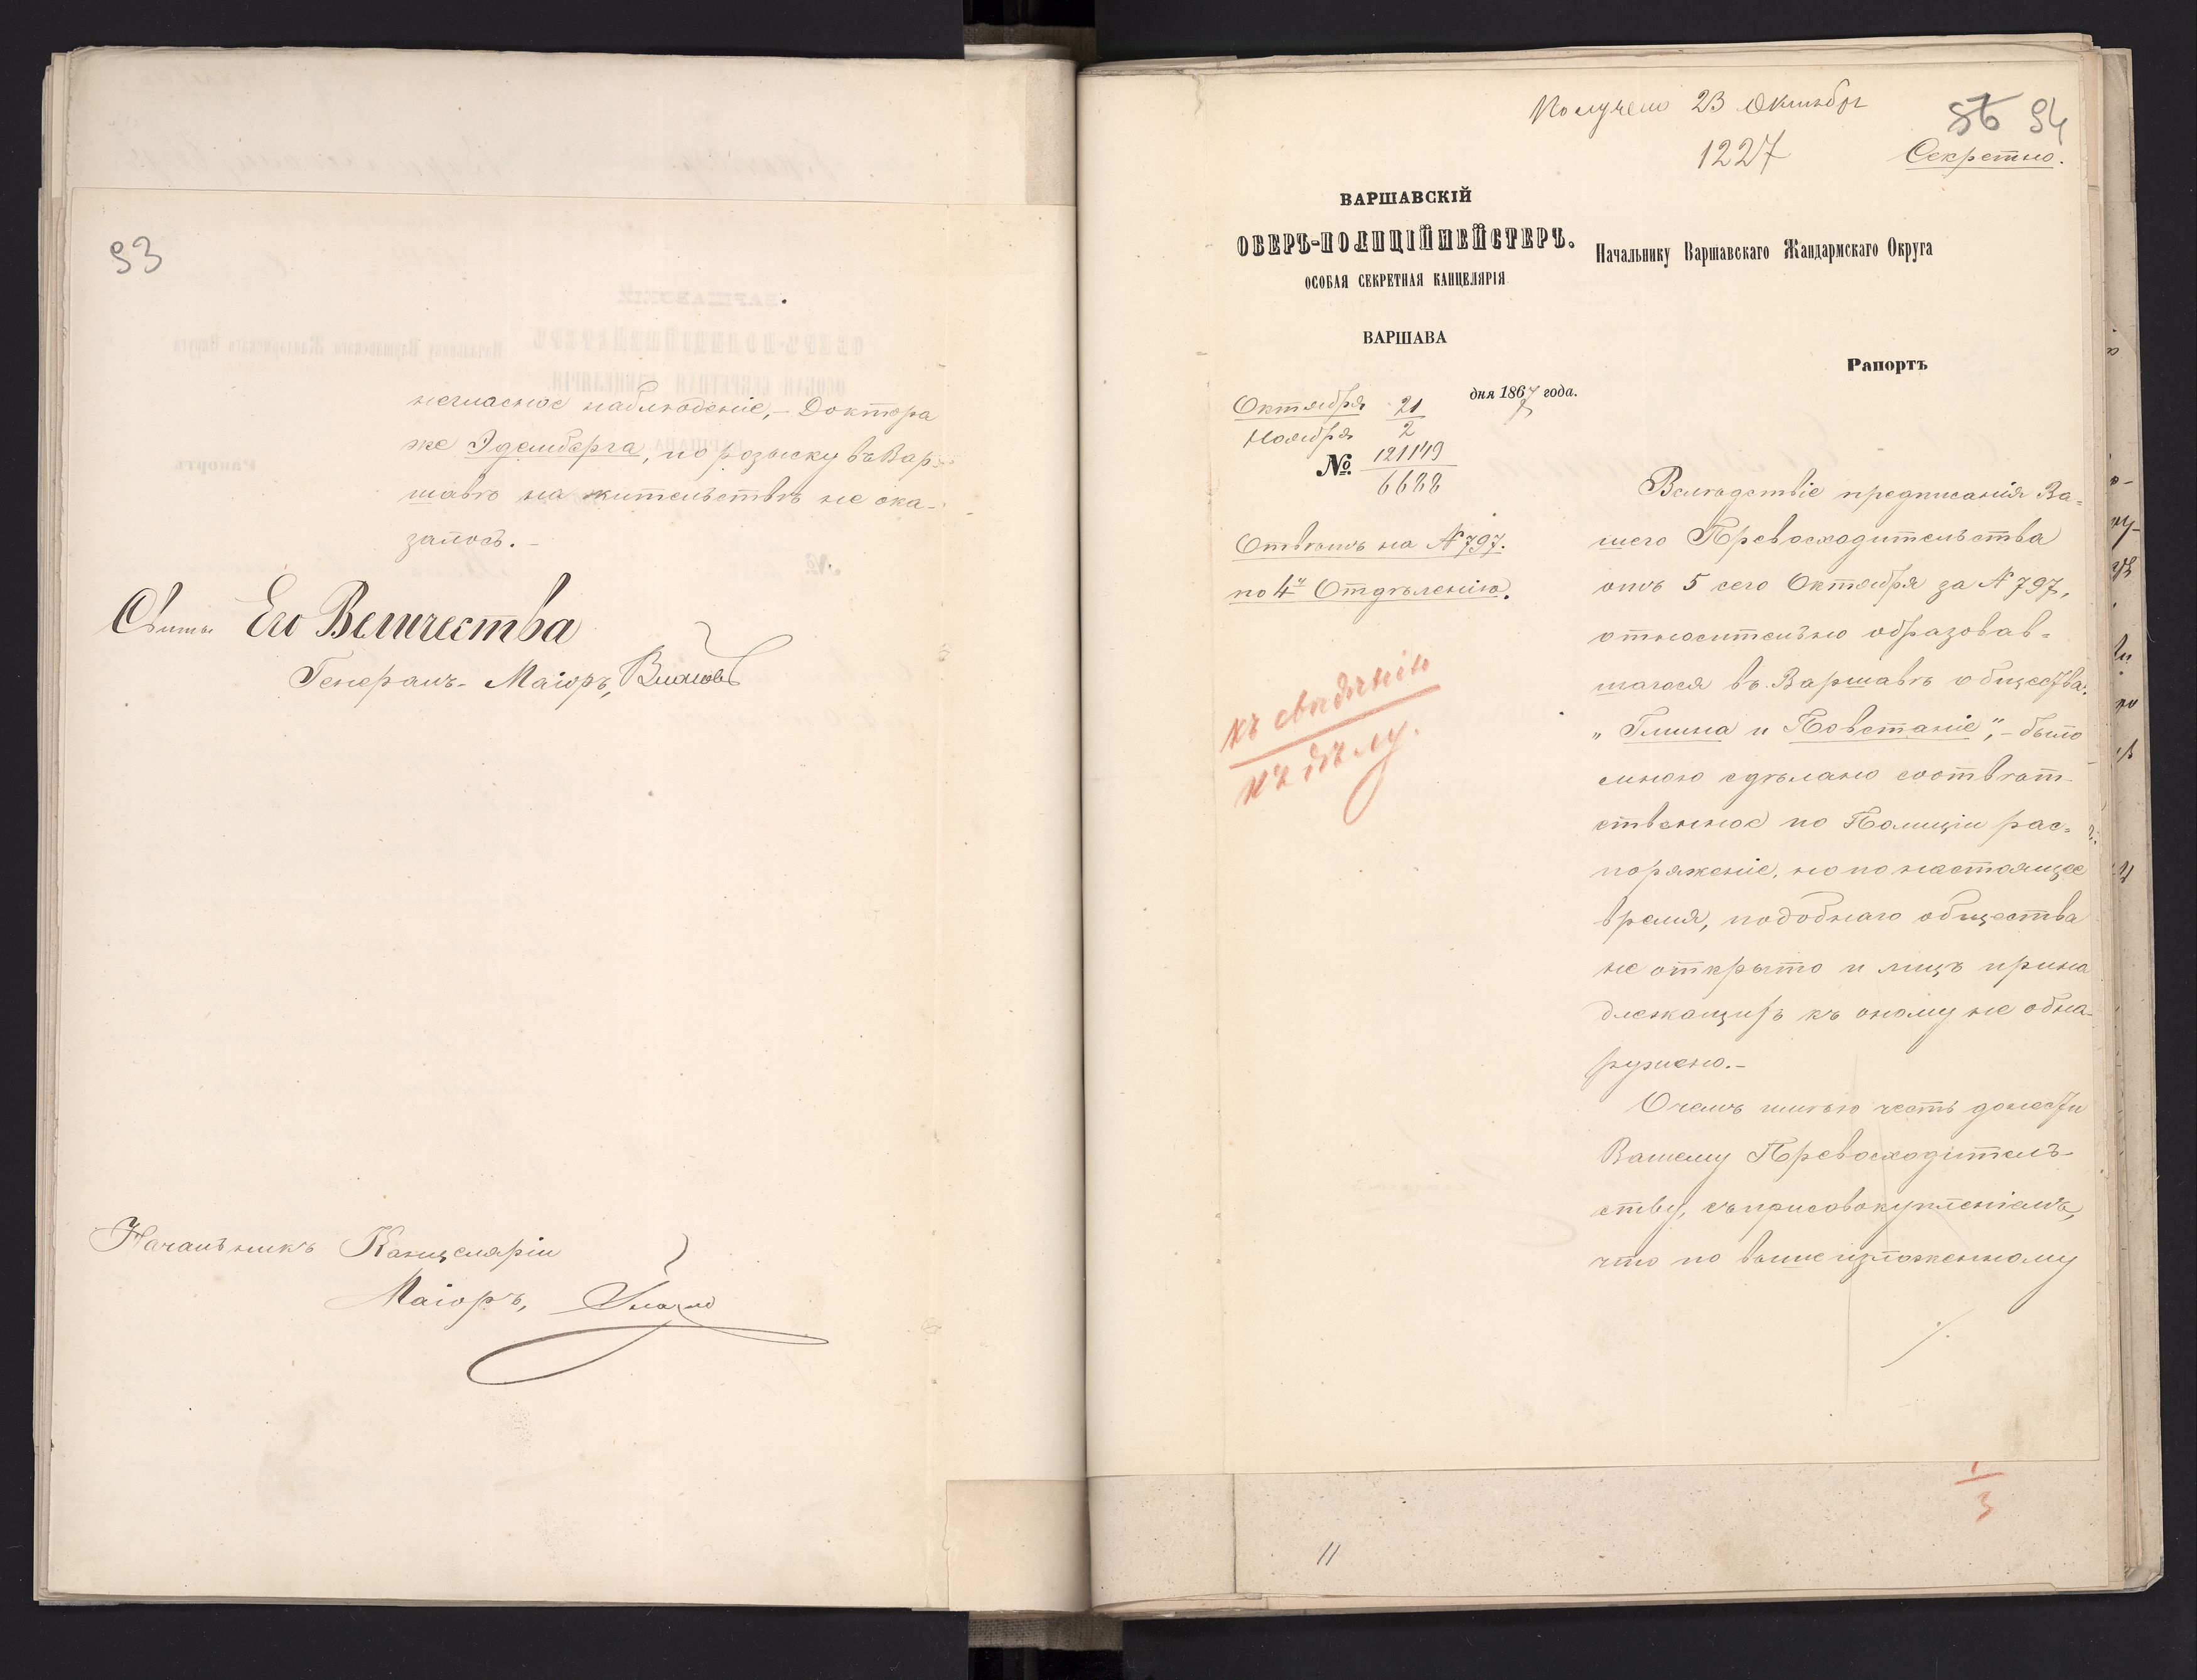 93
негласное наблюденіе, – Доктора
же Эденберга, по розыску въ Вар-
шавѣ на жительствѣ не ока-
залось. –
Свиты Его Величества
Генералъ-Маіоръ,
Начальникъ Канцеляріи
Маіоръ,
Получено 23 Октября
94
1227
Секретно.
ВАРШАВСКІЙ
ОБЕРЪ-ПОЛИЦІЙМЕЙСТЕРЪ.
ОСОБАЯ СЕКРЕТНАЯ КАНЦЕЛЯРІЯ
ВАРШАВА
Октября 21 дня 1867 года.
Ноября 2
№ 121149
6688
Отвѣтъ на № 797.
по 4у Отдѣленію.
къ свѣдѣнію
къ дѣлу.
Начальнику Варшавскаго Жандармскаго Округа
Рапортъ
Вслѣдствіе предписанія Ва=
шего Превосходительства
отъ 5 сего Октября за № 797,
относительно образовав=
шагося въ Варшавѣ общества:
„Гмина и Повстаніе", – было
мною сдѣлано соотвѣт-
ственное по Полиціи рас=
поряженіе, но по настоящее
время, подобнаго общества
не открыто и лицъ прина
длежащихъ къ оному не обна-
ружено. –
О чемъ имѣю честь донести
Вашему Превосходитель-
ству, съ присовокупленіемъ,
что по вышеизложенному
1
3
11